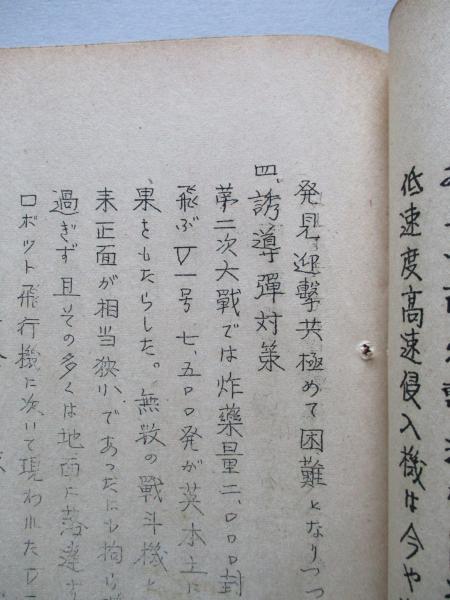 低速度高速侵入機は今や
発見、迎撃共極めて困難となりつつ
四、誘導彈対策
第二次大戰では炸藥量二、〇〇〇封
飛ぶV一号 七、五〇〇発が英本土に
果をもたらした。無数の戰斗機と
来正面が相当狭小であったにも拘ら
過ぎず且その多くは地面に落達す
ロボット飛行機に次いで現われたV